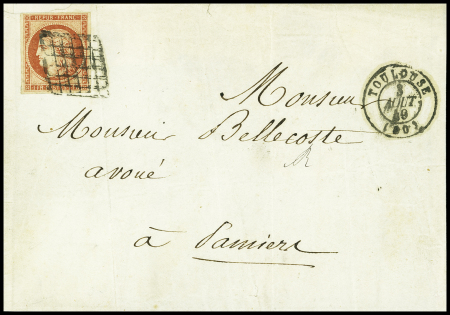 REPUB. FRANC.
TOULOUSE
AOUT
(30)
Monsieur
Monsieur Bellecoste
avoué
à Pamiers